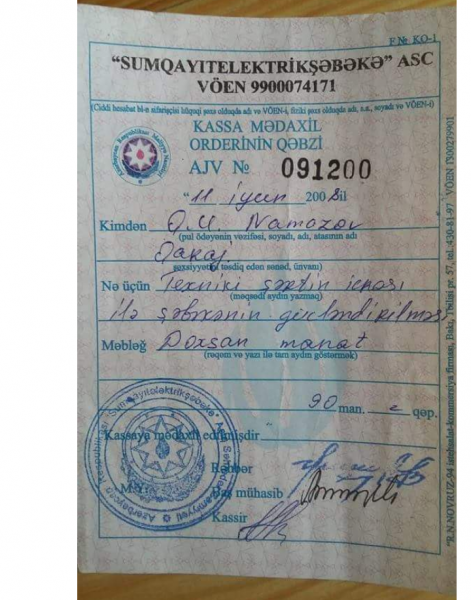 F № KO-1
"SUMQAYITELEKTRİKŞƏBƏKƏ" ASC
VÖEN 9900074171
(Ciddi hesabat bl-n sifarişçisi hüquqi şəxs olduqda adı və VÖEN-i, fiziki şəxs olduqda adı, a.a., soyadı və VÖEN-i)
KASSA MƏDAXİL
ORDERİNİN QƏBZİ
AJV № 091200
"11 iyun 2008 il
Kimdən Namazov
(pul ödəyənin vəzifəsi, soyadı, adı, atasının adı
şəxsiyyəti təsdiq edən sənəd, ünvanı)
Nə üçün Texniki şərtin icrası
(məqsədi aydın yazmaq)
ilə şəbəkənin gücləndirilməsi
Məbləğ Doxsan manat
(rəqəm və yazı ilə tam göstərmək)
90 man. qəp.
Kassaya mədaxil edilmişdir
Rəhbər
M.Y. Baş mühasib
Kassir
Azərbaycan Respublikası "Sumqayıtelektrikşəbəkə" Açıq Səhmdar Cəmiyyəti
"R.N.NOVRUZ-94 istehsalat-kommersiya firması, Bakı, Tbilisi pr. 57, tel: 430-81-97 VÖEN 1300279901